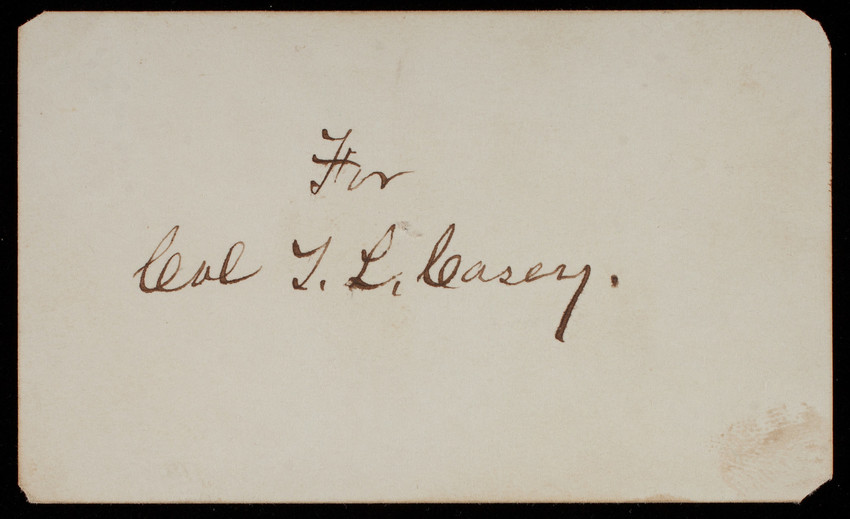 For
Col T. L. Casey.